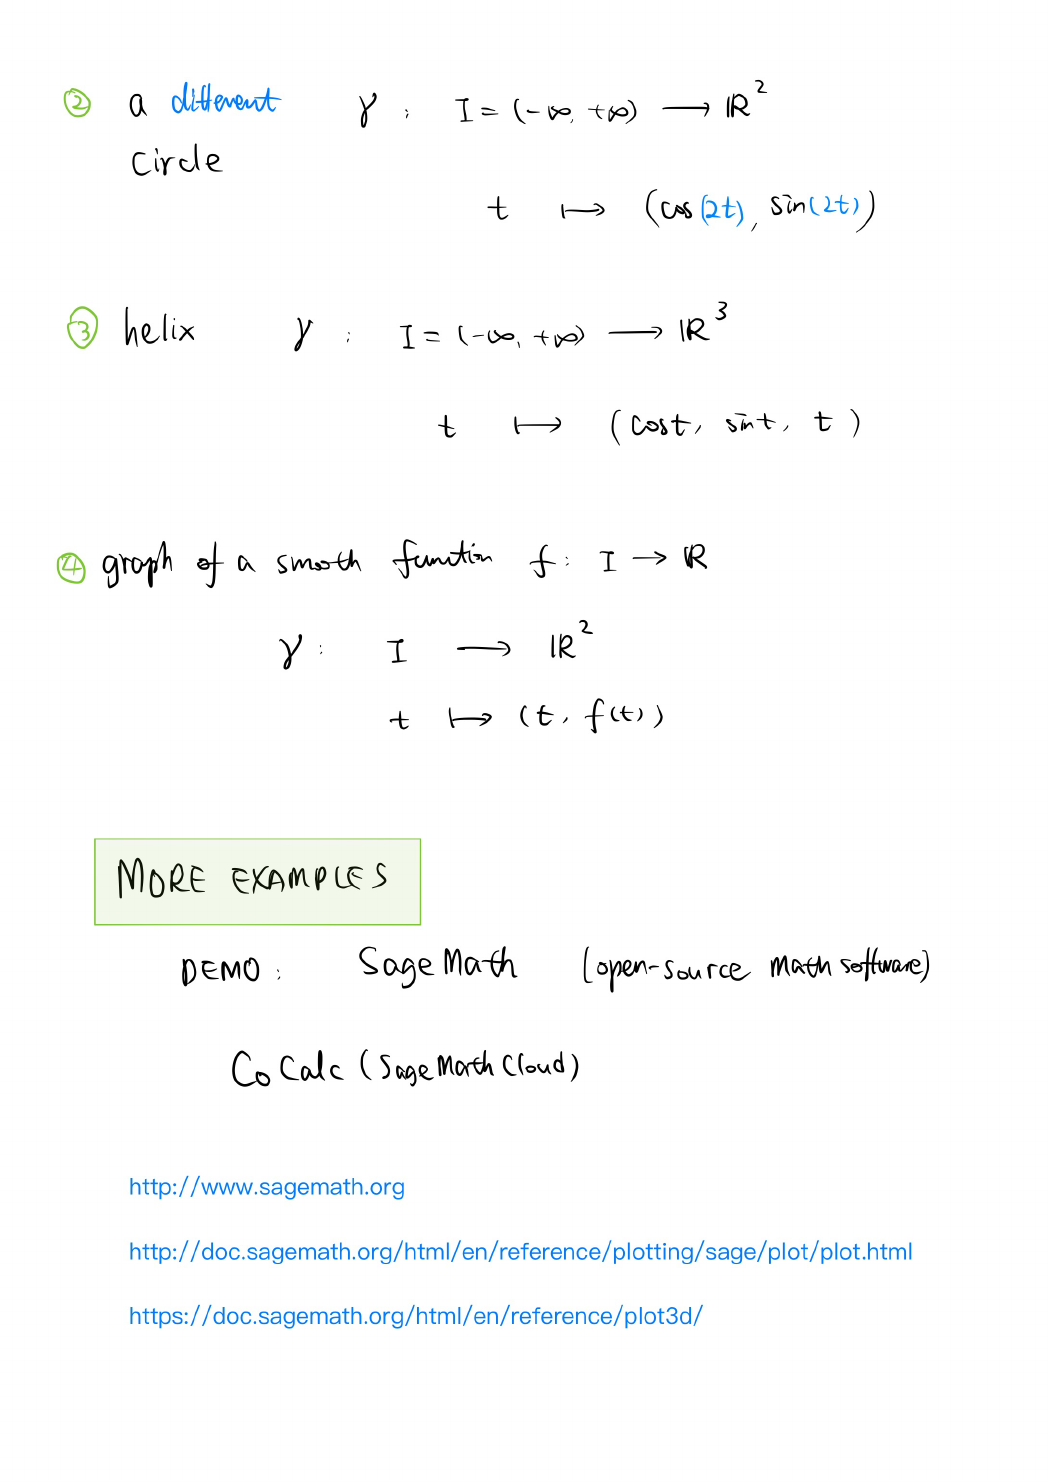 ② a different γ : I = (-∞, +∞) ⟶ ℝ²
circle
t ⟼ (cos(2t), sin(2t))
③ helix γ : I = (-∞, +∞) ⟶ ℝ³
t ⟼ (cost, sint, t)
④ graph of a smooth function f : I → ℝ
γ : I ⟶ ℝ²
t ⟼ (t, f(t))
MORE EXAMPLES
DEMO : SageMath (open-source math software)
CoCalc (SageMathCloud)
http://www.sagemath.org
http://doc.sagemath.org/html/en/reference/plotting/sage/plot/plot.html
https://doc.sagemath.org/html/en/reference/plot3d/